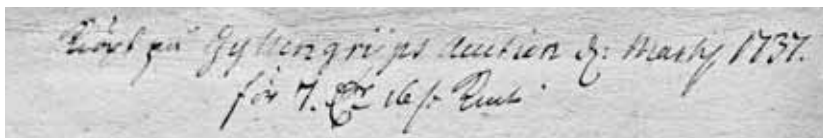 Kiöpt på Gyllengrijps Auction d: Martij 1737.
för 7. 16 s.